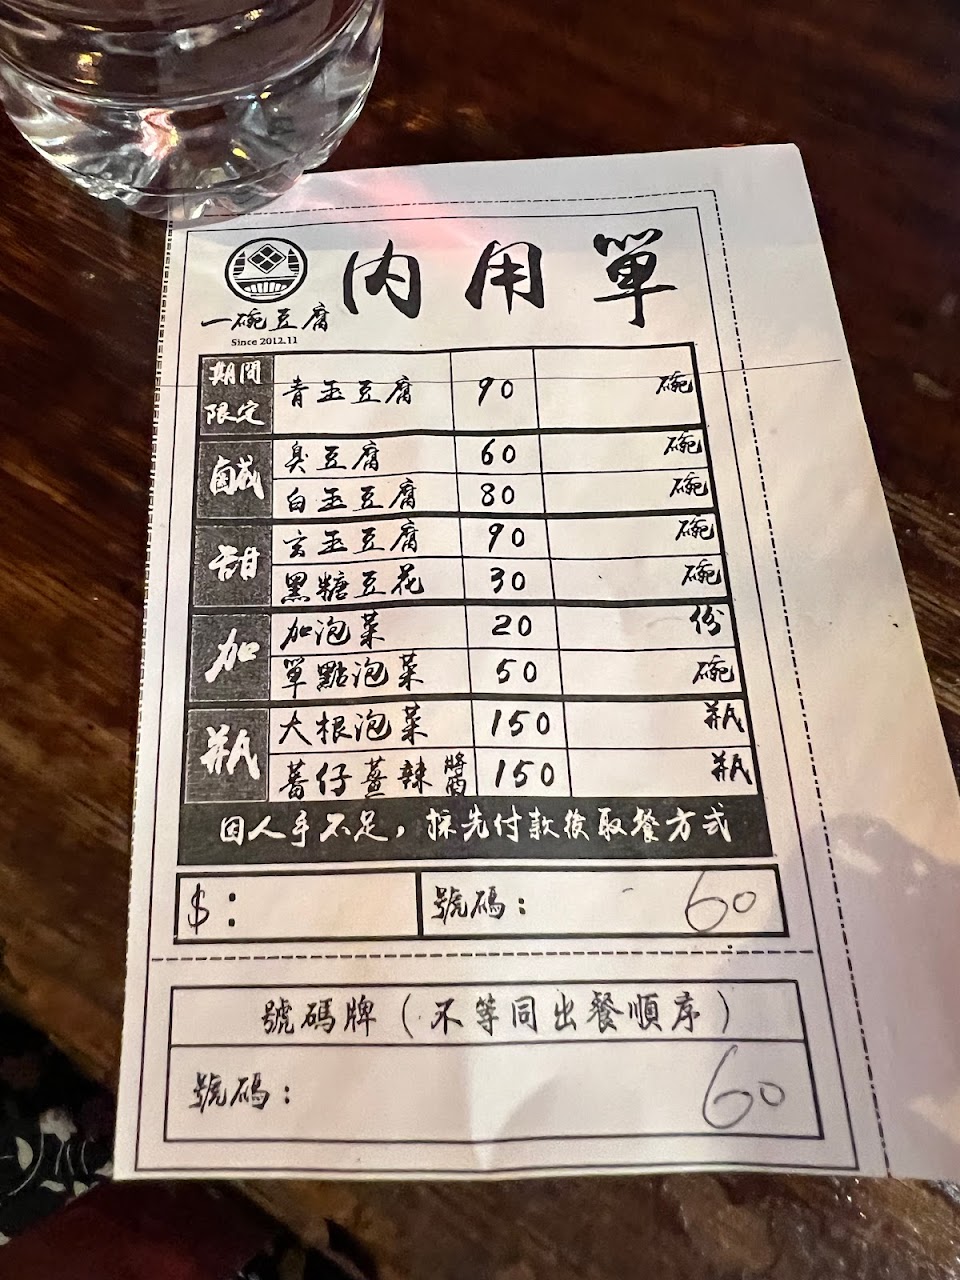 內用單
一碗豆腐
Since 2012.11
期間限定 青玉豆腐 90 碗
鹹 臭豆腐 60 碗
白玉豆腐 80 碗
甜 玄玉豆腐 90 碗
黑糖豆花 30 碗
加 加泡菜 20 份
單點泡菜 50 碗
瓶 大根泡菜 150 瓶
蕃仔薑辣醬 150 瓶
因人手不足，採先付款後取餐方式
$： 號碼： 60
號碼牌（不等同出餐順序）
號碼： 60